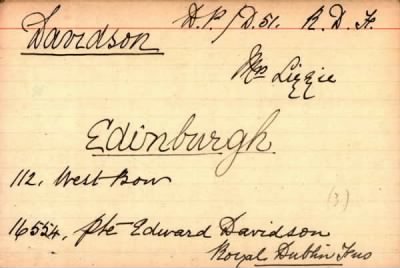 Davidson D.P./D.51. R.D.F.
Mrs Lizzie
Edinburgh
112, West Bow
(3)
16554, Pte Edward Davidson
Royal Dublin Fus